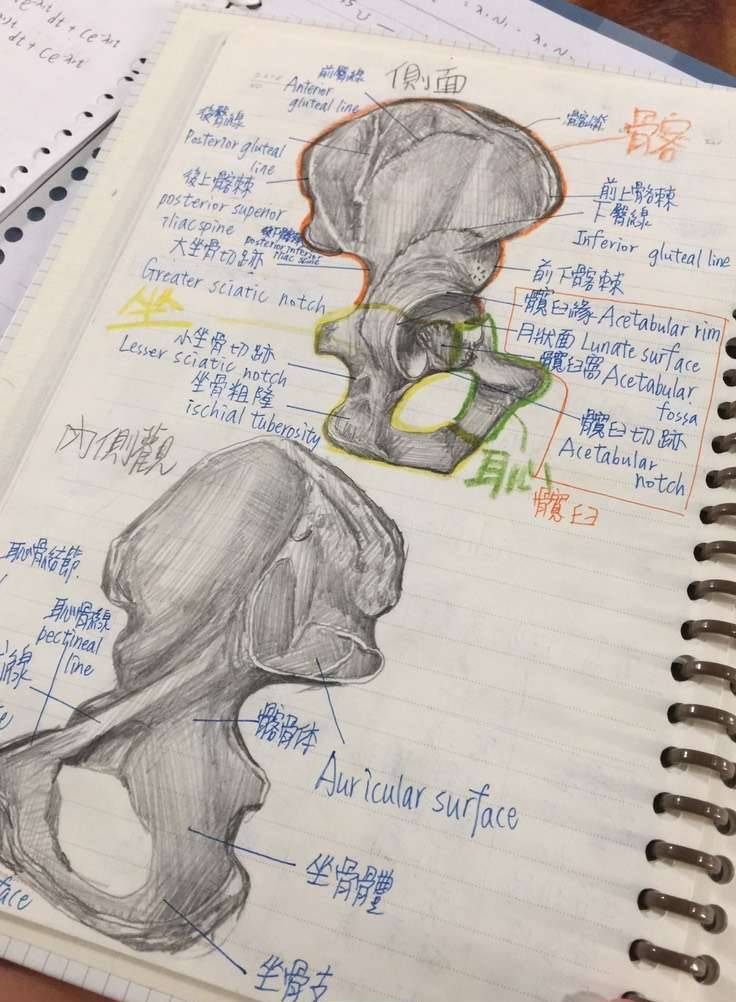 側面
前臀線
Anterior
gluteal line
後臀線
Posterior gluteal
line
後上髂棘
posterior superior
iliac spine
後下髂棘
posterior inferior
iliac spine
大坐骨切跡
Greater sciatic notch
坐
小坐骨切跡
Lesser sciatic notch
坐骨粗隆
ischial tuberosity
髂嵴
前上髂棘
下臀線
Inferior gluteal line
前下髂棘
髖臼緣 Acetabular rim
月狀面 Lunate surface
髖臼窩 Acetabular
fossa
髖臼切跡
Acetabular
notch
髖臼
恥
內側觀
恥骨結節
恥骨線
pectineal
line
線
髂骨体
Auricular surface
坐骨體
坐骨支
face